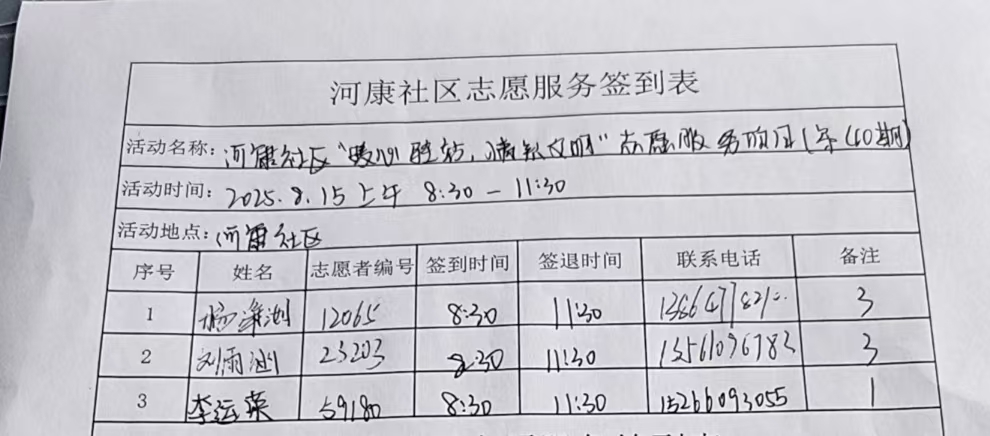 河康社区志愿服务签到表
活动名称: 河康社区“暖心驿站, 情系文明”志愿服务项目(第40期)
活动时间: 2025.8.15上午 8:30-11:30
活动地点: 河康社区
序号 姓名 志愿者编号 签到时间 签退时间 联系电话 备注
1 12065 8:30 11:30 3
2 刘雨 23203 8:30 11:30 13561096783 3
3 李运荣 59180 8:30 11:30 15266093055 1